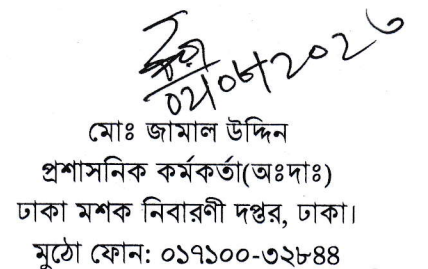 ০২/০৬/২০২৩
মোঃ জামাল উদ্দিন
প্রশাসনিক কর্মকর্তা(অঃদাঃ)
ঢাকা মশক নিবারণী দপ্তর, ঢাকা।
মুঠো ফোন: ০১৭১০০-৩২৮৪৪